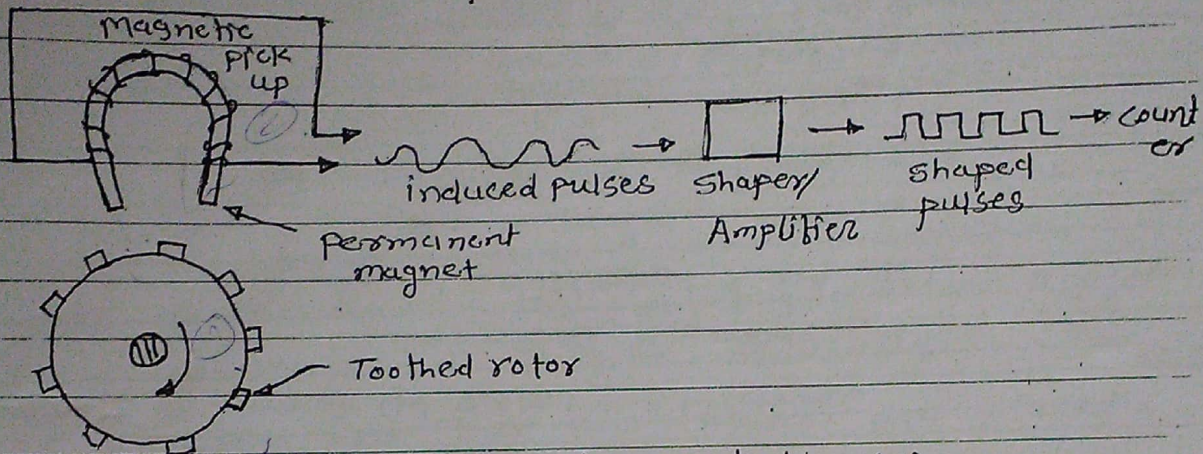 Magnetic
pick
up
induced pulses
shaper/
Amplifier
shaped
pulses
count
er
permanant
magnet
Toothed rotor